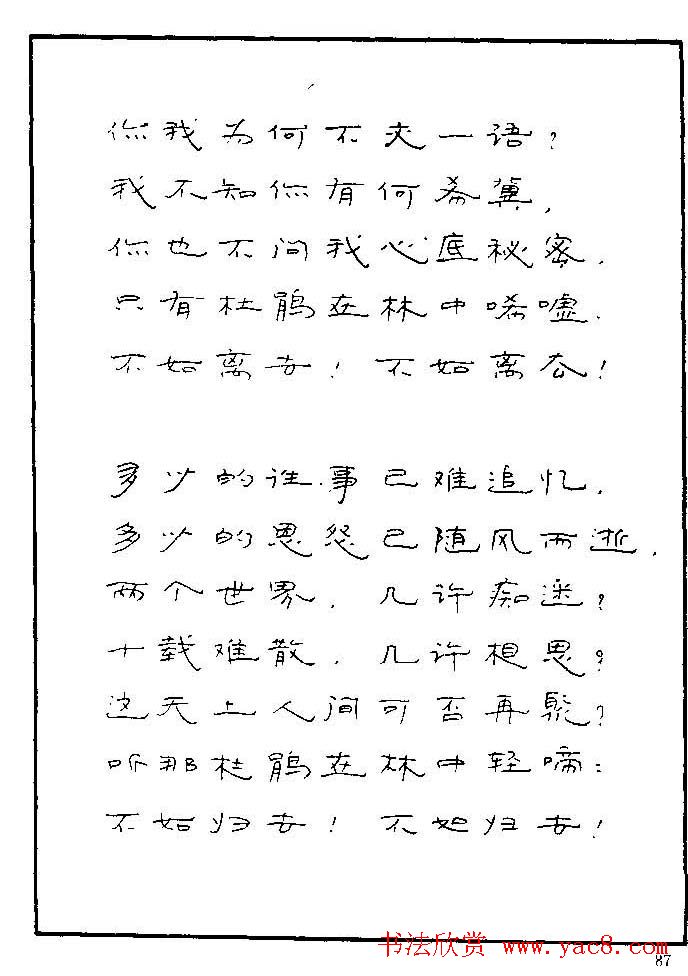 你我为何不交一语？
我不知你有何希冀，
你也不问我心底秘密，
只有杜鹃在林中唏嘘．
不如离去！不如离去！
多少的往事已难追忆，
多少的恩怨已随风而逝，
两个世界，几许痴迷？
十载难散，几许相思？
这天上人间可否再聚？
听那杜鹃在林中轻啼：
不如归去！不如归去！
书法欣赏 www.yac8.com
87